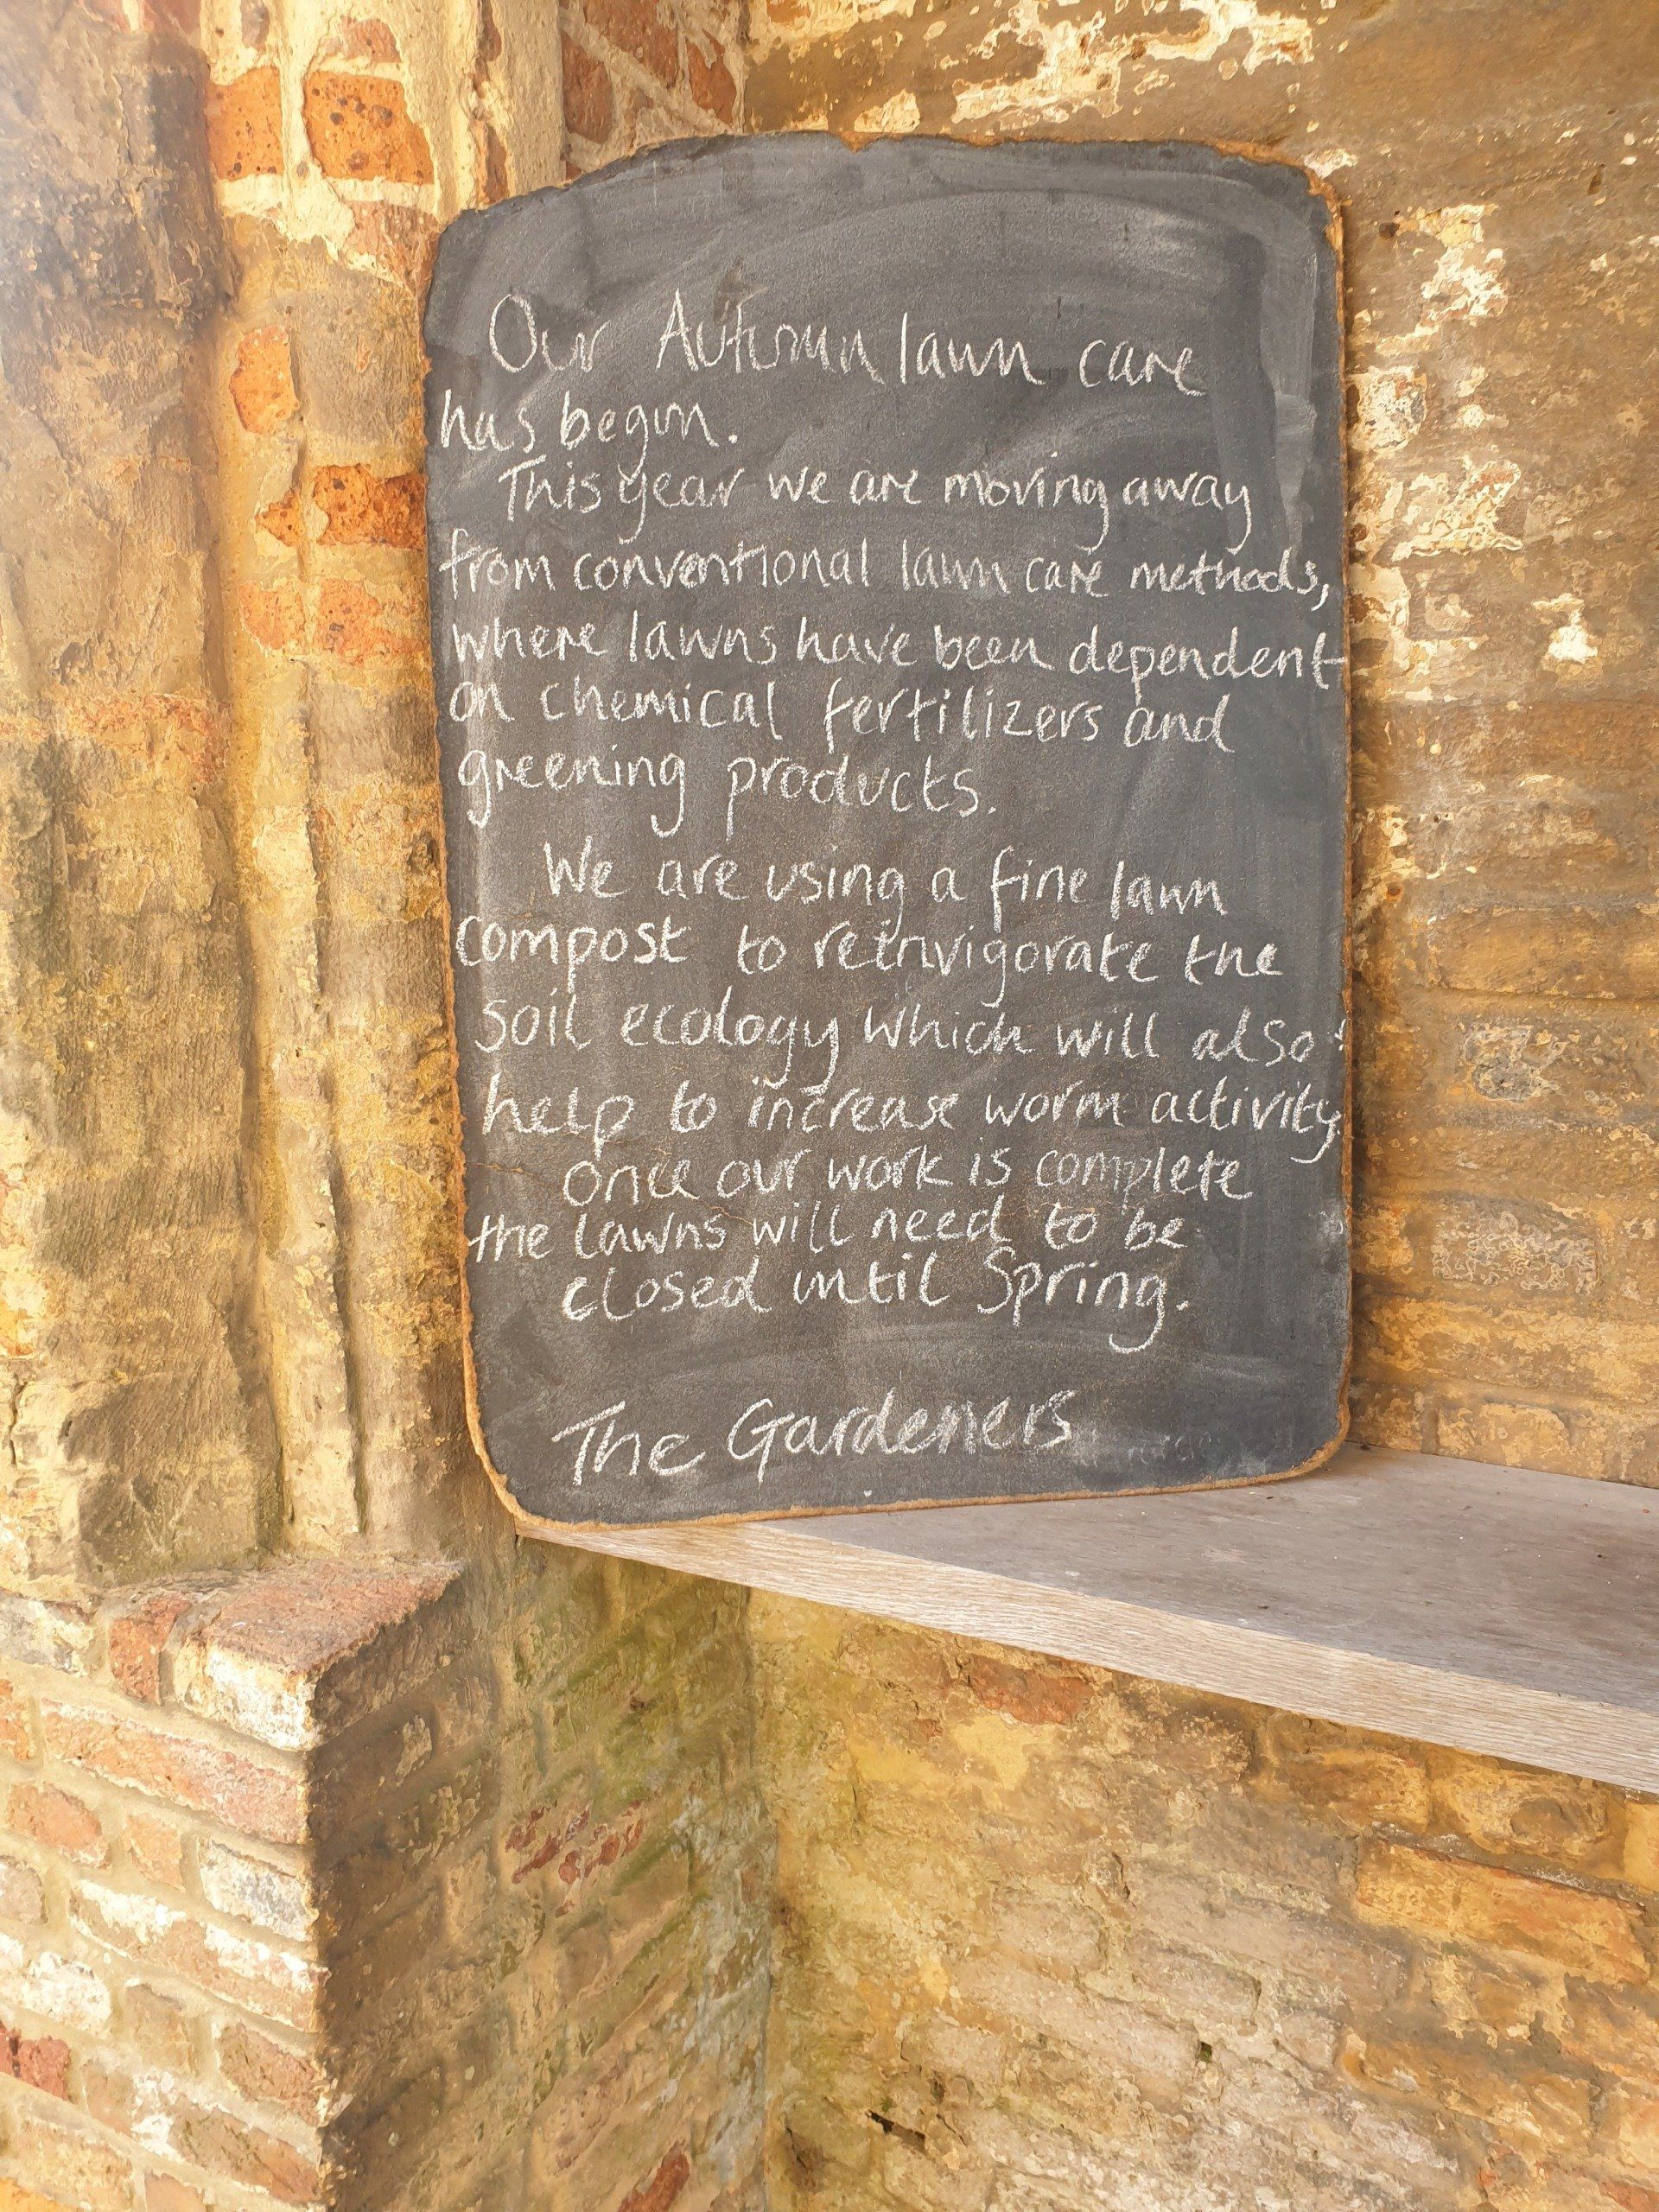 Our Autumn lawn care
has begun.
This year we are moving away
from conventional lawn care methods,
where lawns have been dependent
on chemical fertilizers and
greening products.
We are using a fine lawn
compost to reinvigorate the
soil ecology which will also
help to increase worm activity.
Once our work is complete
the lawns will need to be
closed until Spring.
The Gardeners